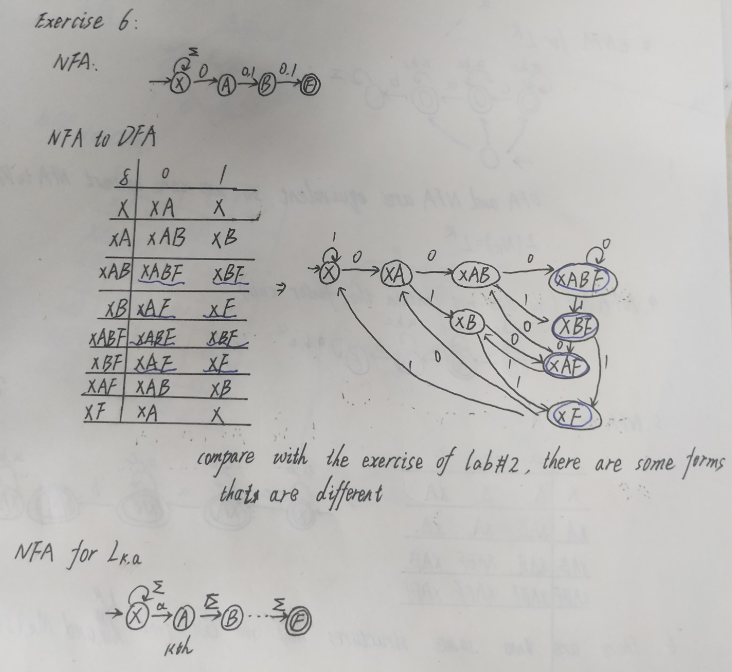 Exercise 6:
NFA:
Σ
X 0 A 0,1 B 0,1 F
NFA to DFA
δ 0 1
X XA X
XA XAB XB
XAB XABF XBF
XB XAF XF
XABF XABF XBF
XBF XAF XF
XAF XAB XB
XF XA X
⇒
1 0
X 0 XA 0 XAB 0 XABF
1 1 1
XB XBF
0 0 0
XAF
0 1 1 1
XF
compare with the exercise of lab#2, there are some forms
thats are different
NFA for Lk,a
Σ
X a A Σ B ... Σ F
kth